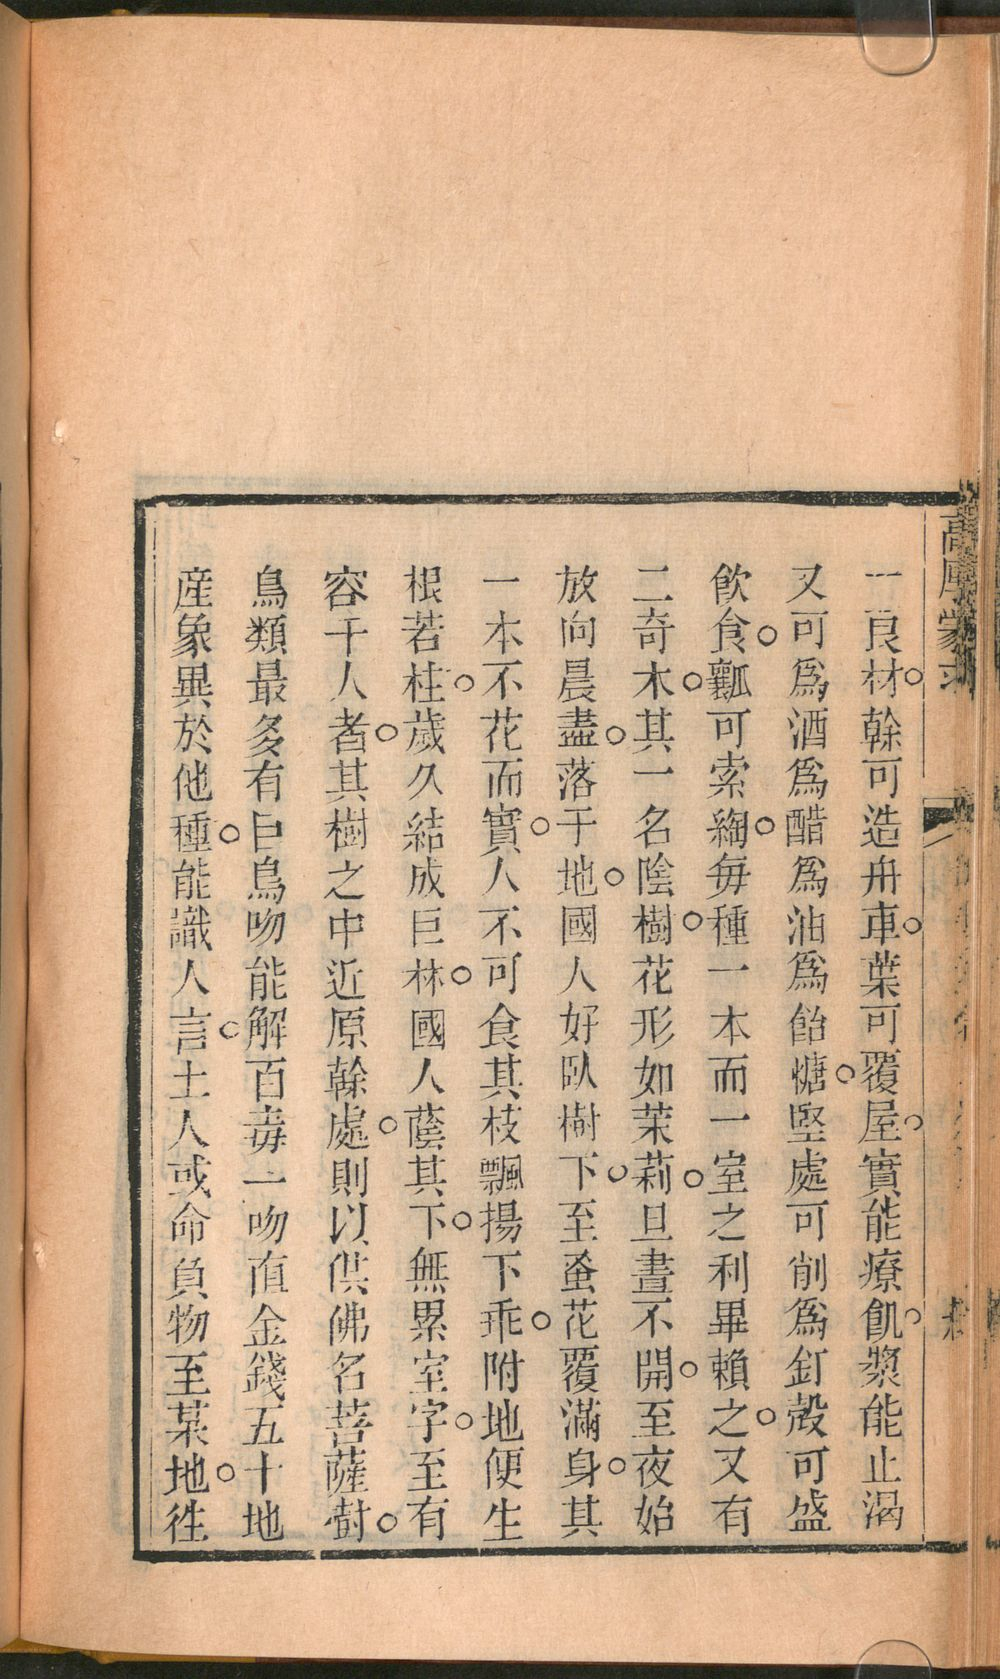 一良材。榦可造舟車。葉可覆屋。實能療飢。漿能止渴
又可爲酒爲醋爲油爲飴糖。堅處可削爲釘殼可盛
飲食。瓤可索綯。每種一本而一室之利畢賴之。又有
二奇木。其一名陰樹。花形如茉莉。旦晝不開。至夜始
放向晨盡。落于地。國人好臥樹下。至蚤花覆滿身。其
一本不花而實。人不可食其枝飄揚下乖。附地便生
根若柱。歲久結成巨林。國人蔭其下。無累室宇。至有
容千人者。其樹之中近原榦處。則以供佛名菩薩樹。
鳥類最多有巨鳥吻能解百毒一吻直金錢五十地
産象異於他種。能識人言。土人或命負物至某地。徃